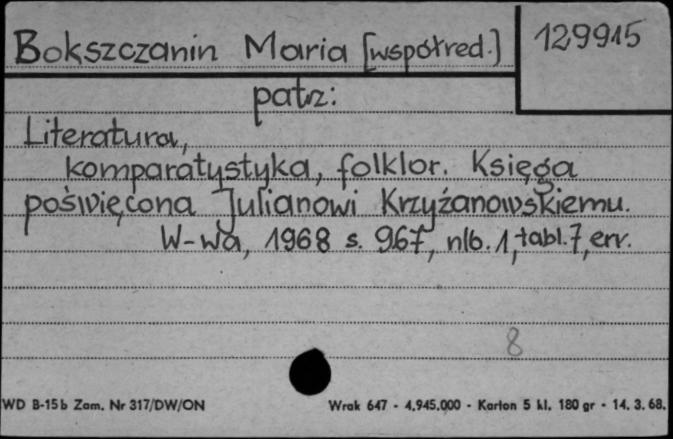 Bokszczanin Maria [współred.]
129915
patrz:
Literatura,
komparatystyka, folklor. Księga
poświęcona Julianowi Krzyżanowskiemu.
W-wa, 1968 s. 967, nlb. 1, tabl. 7, err.
8
WD B-15b Zam. Nr 317/DW/ON
Wrak 647 - 4.945.000 - Karton 5 kl. 180 gr - 14. 3. 68.